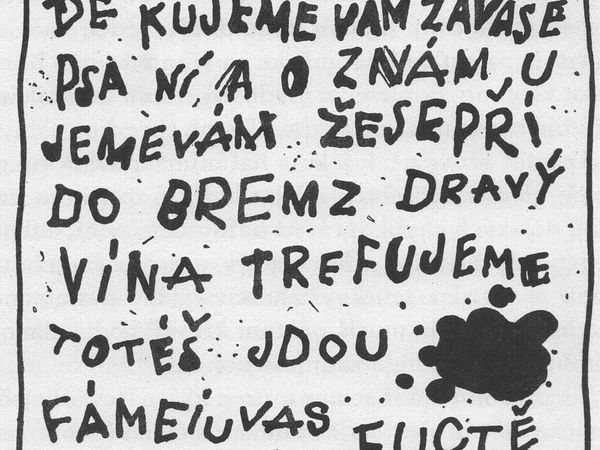 DĚ KUJEME VÁM ZAVAŠE
PSA NÍ A O ZNÁM U
JEMEVÁM ŽESEPŘI
DO BREMZ DRAVÝ
VÍNA TREFUJEME
TOTÉŠ JDOU
FÁMEIUVAS FUCTĚ